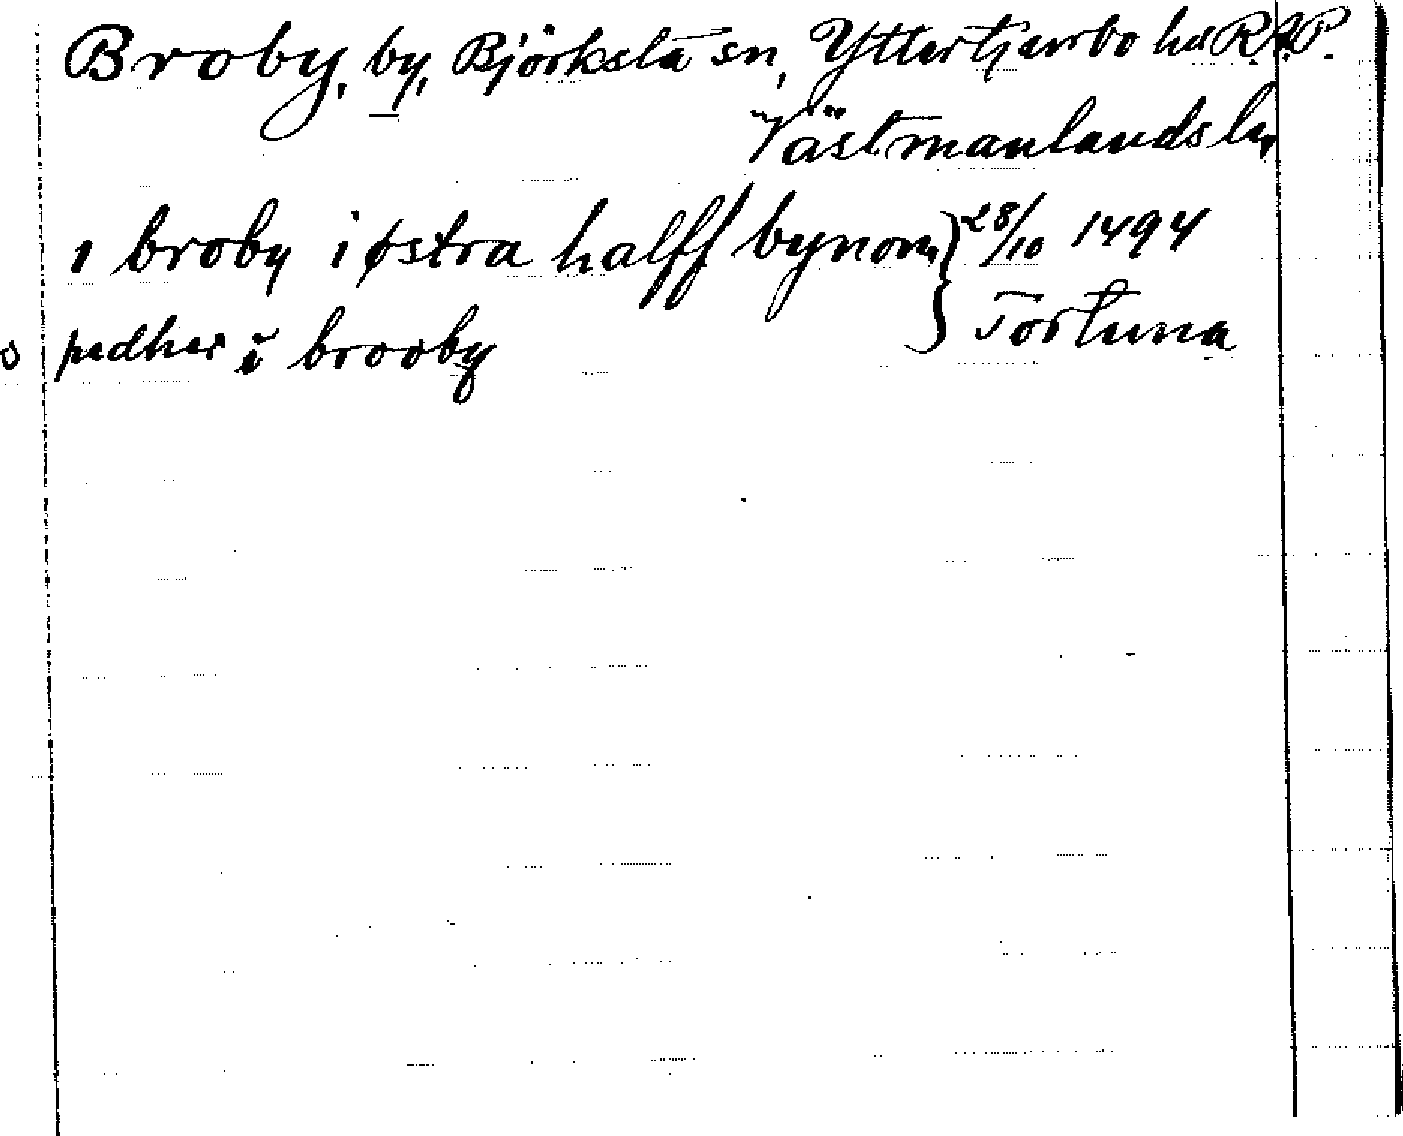 Broby, by, Björksta sn, Yttertjurbo hd RAP.
Västmanlands län
i broby i østra halff bynom } 28/10 1494
pedher i brooby Tortuna